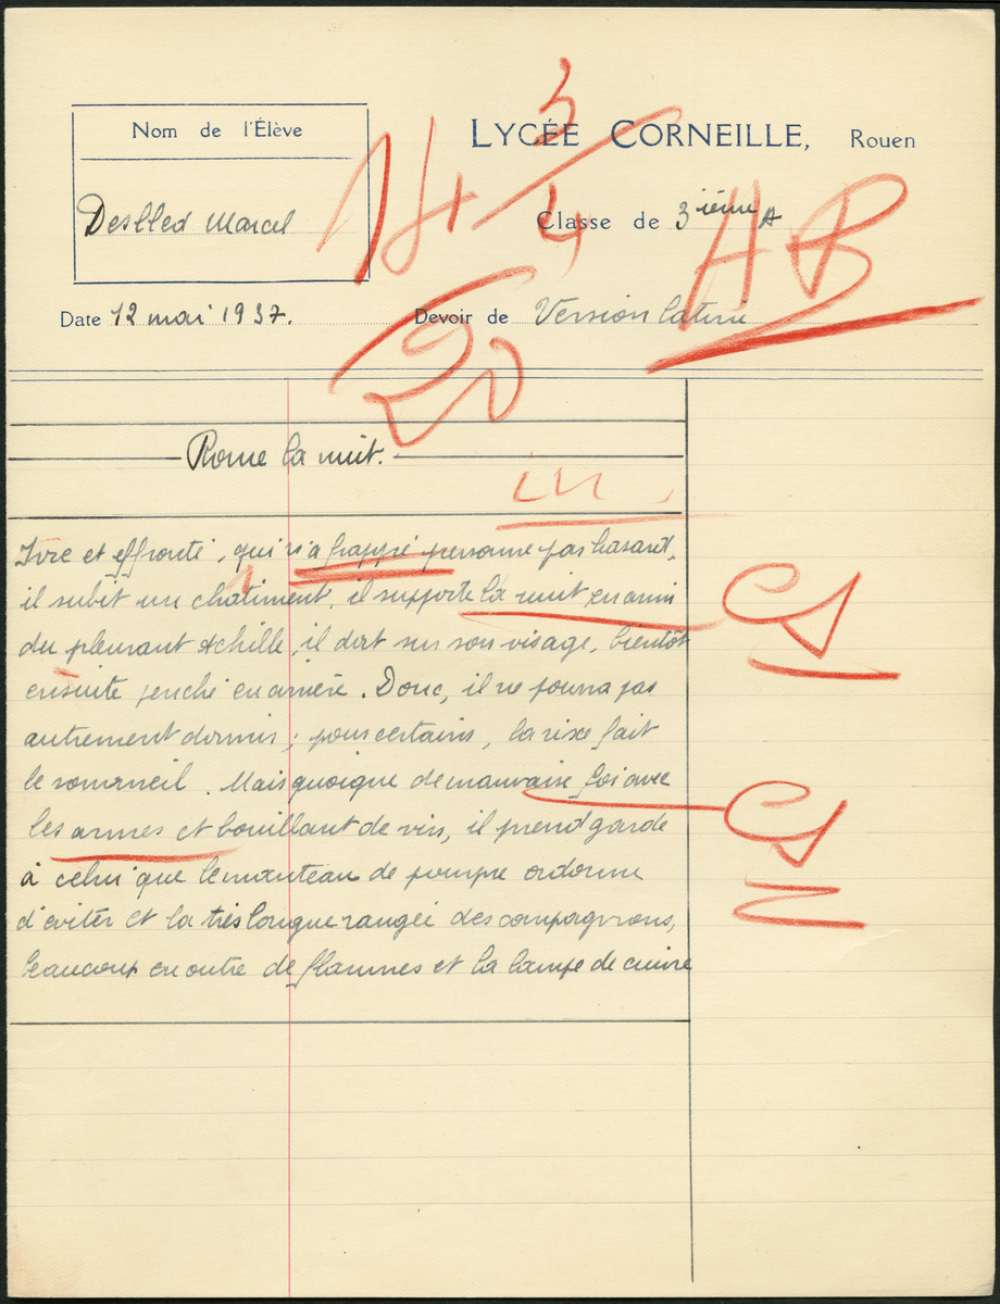 Nom de l'Élève
LYCÉE CORNEILLE, Rouen
Marcel
Classe de 3ième A
Date 12 mai 1937.
Devoir de Version latine
14 + 3/4
20
AB
Rome la nuit.
Ivre et effronté, qui n'a frappé personne par hasard,
il subit un châtiment, il supporte la nuit en ami
du pleurant Achille, il dort sur son visage, bientôt
ensuite penché en arrière. Donc, il ne pourra pas
autrement dormir ; pour certains, la rixe fait
le sommeil. Mais quoique de mauvaise foi avec
les armes et bouillant de vin, il prend garde
à celui que le manteau de pourpre ordonne
d'éviter et la très longue rangée des compagnons,
beaucoup en outre de flammes et la lampe de cuivre
CS
CS
NS